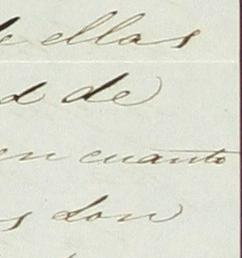 e ellas
d de
en cuanto
s son